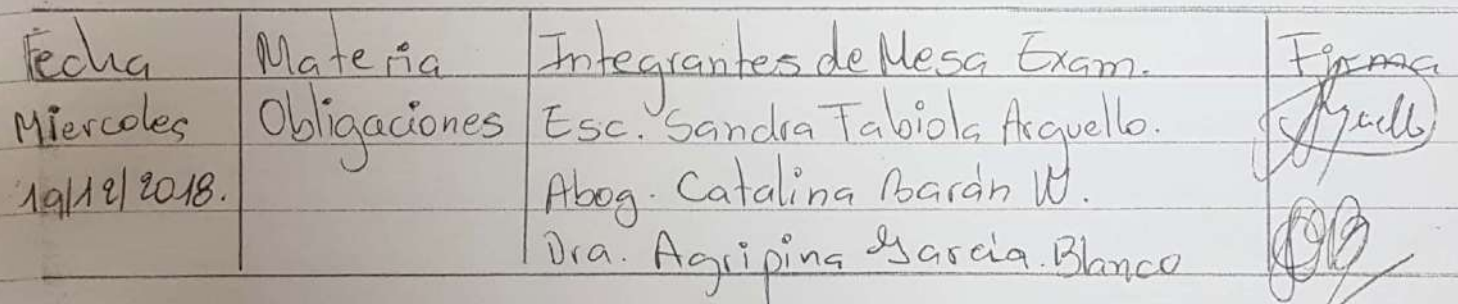 Fecha Materia Integrantes de Mesa Exam. Firma
Miercoles Obligaciones Esc. Sandra Fabiola Arguello. Arguello
19/12/2018. Abog. Catalina Barán W.
Dra. Agripina Garcia. Blanco